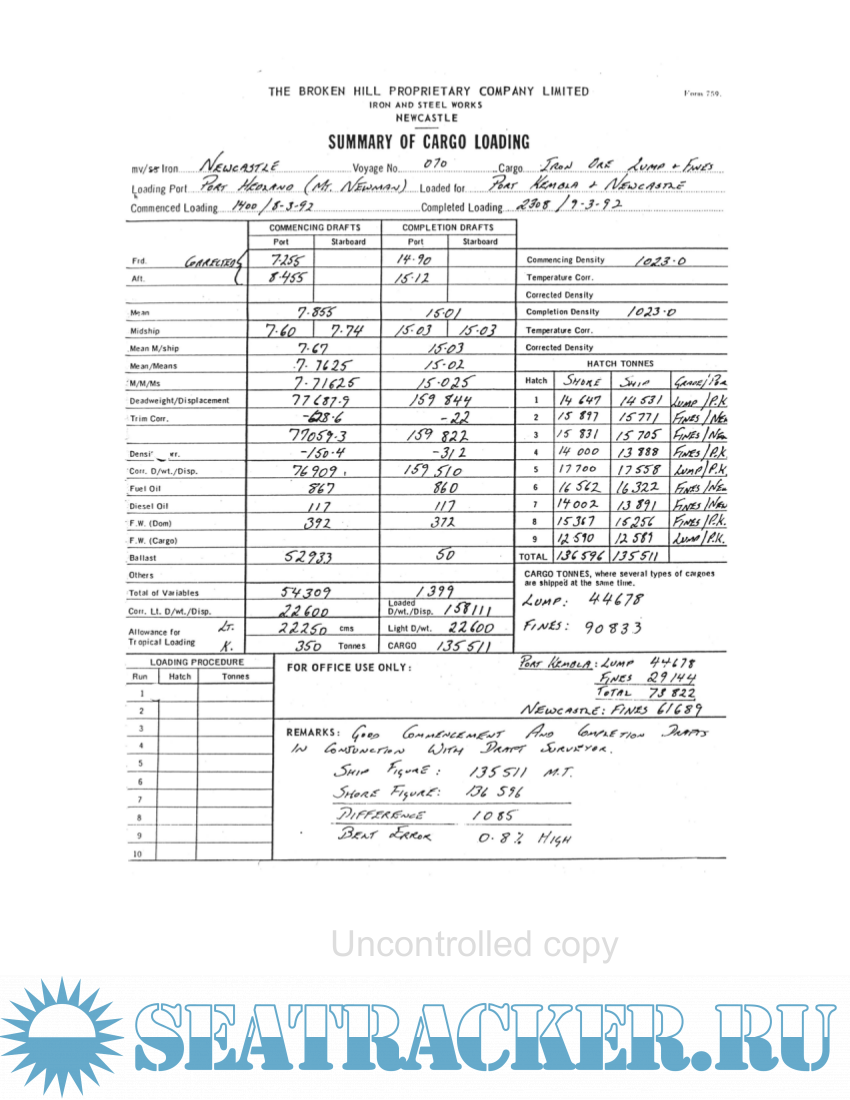 THE BROKEN HILL PROPRIETARY COMPANY LIMITED
Form 759.
IRON AND STEEL WORKS
NEWCASTLE
SUMMARY OF CARGO LOADING
mv/ss Iron NEWCASTLE Voyage No. 070 Cargo IRON ORE LUMP + FINES
Loading Port PORT HEDLAND (MT. NEWMAN) Loaded for PORT KEMBLA & NEWCASTLE
Commenced Loading 1400 / 8-3-92 Completed Loading 2308 / 9-3-92
COMMENCING DRAFTS COMPLETION DRAFTS
Port Starboard Port Starboard
Frd. CORRECTED 7.255 14.90 Commencing Density 1023.0
Aft. 8.455 15.12 Temperature Corr.
Corrected Density
Mean 7.855 15.01 Completion Density 1023.0
Midship 7.60 7.74 15.03 15.03 Temperature Corr.
Mean M/ship 7.67 15.03 Corrected Density
Mean/Means 7.7625 15.02 HATCH TONNES
M/M/Ms 7.71625 15.025 Hatch SHORE SHIP GRADE/POR
Deadweight/Displacement 77687.9 159 844 1 14 647 14 531 LUMP/P.K
Trim Corr. -628.6 -22 2 15 897 15 771 FINES/NEW
77059.3 159 822 3 15 831 15 705 FINES/NEW
Densi rr. -150.4 -312 4 14 000 13 888 FINES/P.K.
Corr. D/wt./Disp. 76 909 159 510 5 17 700 17 558 LUMP/P.K.
Fuel Oil 867 860 6 16 562 16 322 FINES/NEW
Diesel Oil 117 117 7 14 002 13 891 FINES/NEW
F.W. (Dom) 392 372 8 15 367 15 256 FINES/P.K.
F.W. (Cargo) 9 12 590 12 589 LUMP/P.K.
Ballast 52933 50 TOTAL 136 596 135 511
Others CARGO TONNES, where several types of cargoes are shipped at the same time.
Total of Variables 54309 1399 LUMP: 44678
Corr. Lt. D/wt./Disp. 22600 Loaded D/wt./Disp. 158111
Allowance for Tropical Loading LT. 22250 cms Light D/wt. 22600 FINES: 90833
K. 350 Tonnes CARGO 135 511
LOADING PROCEDURE
Run Hatch Tonnes
1
2
3
4
5
6
7
8
9
10
FOR OFFICE USE ONLY:
PORT KEMBLA: LUMP 44678
FINES 29144
TOTAL 73 822
NEWCASTLE: FINES 61689
REMARKS: GOOD COMMENCEMENT AND COMPLETION DRAFTS
IN CONJUNCTION WITH DRAFT SURVEYOR.
SHIP FIGURE: 135 511 M.T.
SHORE FIGURE: 136 596
DIFFERENCE 1085
BELT ERROR 0.8% HIGH
Uncontrolled copy
SEATRACKER.RU